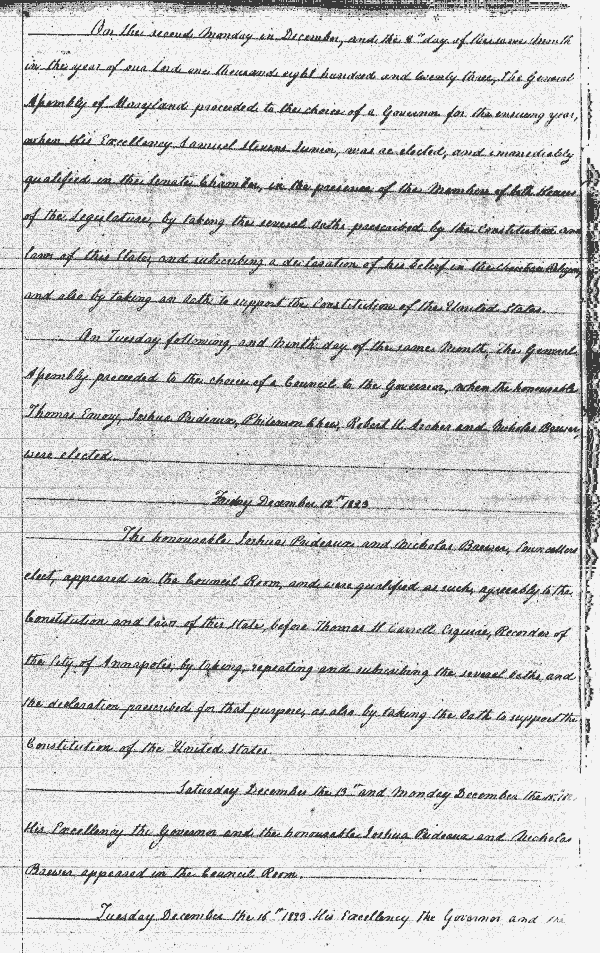 On the second Monday in December, and the 8th day of the same Month
in the year of our Lord one thousand eight hundred and twenty three, The General
Assembly of Maryland proceeded to the choice of a Governor for the ensuing year,
when His Excellency Samuel Stevens Junior, was re elected, and immediately
qualified in the Senate Chamber, in the presence of the Members of both Houses
of the Legislature, by taking the several Oaths prescribed by the Constitution and
laws of this State, and subscribing a declaration of his belief in the Christian Religion,
and also by taking an Oath to support the Constitution of the United States.
On Tuesday following, and Ninth day of the same Month, The General
Assembly proceeded to the choice of a Council to the Governor, when the honourable
Thomas Emory, Joshua Prideaux, Philemon Chew, Robert H. Archer and Nicholas Brewer,
were elected.
Friday December 12th 1823
The honourable Joshua Prideaux and Nicholas Brewer, Councillors
elect, appeared in the Council Room, and were qualified as such, agreeably to the
Constitution and laws of this State, before Thomas H Carroll Esquire, Recorder of
the City of Annapolis, by taking, repeating and subscribing the several Oaths and
the declaration prescribed for that purpose, as also by taking the Oath to support the
Constitution of the United States
Saturday December the 13th and Monday December the 15th
His Excellency the Governor and the honourable Joshua Prideaux and Nicholas
Brewer appeared in the Council Room.
Tuesday December the 16th 1823 His Excellency the Governor and the